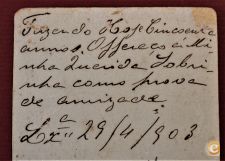 Fazendo Hoje Cincoenta
annos. Offereço á Mi-
nha Querida Sobri-
nha como prova
de amizade.
Lx.ª 29/4/903